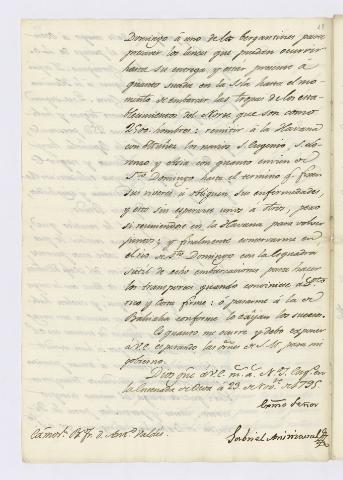 Domingo á uno de los bergantines para
precaver los lances que pueden ocurrir
hasta su entrega y estar presente á
quanto suceda en la Isla hasta el mo-
mento de embarcar las tropas de los esta-
blecimientos del Norte que son como
2500 hombres: remitir á la Havana
con los navios S. Eugenio, S.
y Asia con quanto envien de
Sto. Domingo hasta el termino q.
sus viveres ú obliguen sus enfermedades,
y esto sin esperarse unos á otros, pero
si reuniendose en la Havana para volver
juntos; y finalmente conservarme en
el rio de Sto. Domingo con la esquadra
sutil de ocho embarcaciones para hacer
los transportes quando conviniere á Pto.
rico y Costa firme: ó pasarme á la de
Bahiaha conforme lo exijan los sucesos.
Es quanto me ocurre y debo exponer
á V.E. esperando las ordns. de S.M. para mi
gobierno.
Dios gue. á V.E. ms. as. N.
la Ensenada de Ocoa á 23 de Nove. de 1795.
Exmo Señor
Gabriel Aristizabal
Exmo. Sr. Bo. Fr. D. Anto. Valdes.